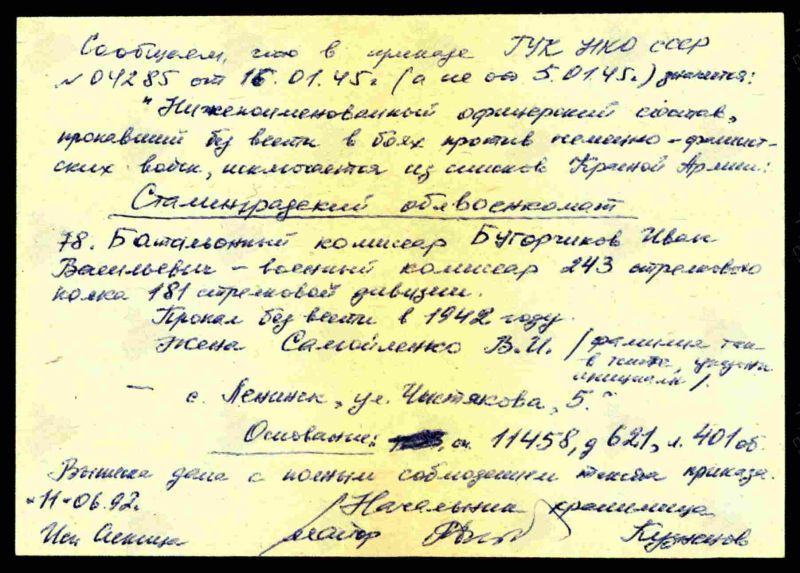 Сообщаем, что в приказе ГУК НКО СССР
№ 04285 от 16.01.45г. (а не от 5.01.45г.) значится:
"Нижепоименованный офицерский состав,
пропавший без вести в боях против немецко-фашист-
ских войск, исключается из списков Красной Армии:
Сталинградский облвоенкомат
78. Батальонный комиссар Бугорчиков Иван
Васильевич – военный комиссар 243 стрелкового
полка 181 стрелковой дивизии.
Пропал без вести в 1942 году.
Жена Самойленко В.И. /фамилия так
в тексте, указаны
инициалы/.
— с. Ленинск, ул. Чистякова, 5."
Основание: оп. 11458, д 621, л. 401 об.
Выписка дана с полным соблюдением текста приказа.
"11" 06.92.
Начальник хранилища
Исп майор Кузненов